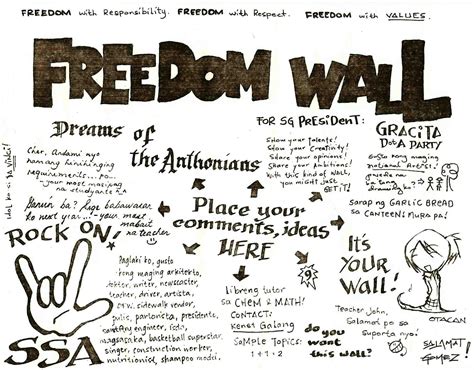 FREEDOM with Responsibility. FREEDOM with Respect. FREEDOM with VALUES.
FREEDOM WALL
FOR SG PRESIDENT:
GRACITA
DOTA PARTY
Dreams of
the Anthonians
Cher, Andami nyo
nam ang hinihinging
requirements...
your most masipag
na studyante
Show your talents!
Show your Creativity!
Share your opinions!
Share your Ambitions!
With this kind of Wall,
you might just
GET IT!
Gusto kong maging
National Artist!
Gemini ba? Sige babawasan
ko next year!
your most
mabait
na teacher
ROCK ON!
SSA
Place your
comments, ideas
HERE
Sarap ng GARLIC BREAD
sa CANTEEN! MURA pa!
IT'S
YOUR
WALL!
OTACAN
Paglaki ko, gusto
kong maging arkitekto,
doktor, writer, newscaster,
teacher, driver, artista,
DSW, sidewalk vendor,
pulis, parlorista, presidente,
engineer, feda,
magsasaka, basketball superstar,
singer, construction worker,
nutritionist, shampoo model.
libreng tutor
sa CHEM & MATH!
CONTACT:
Kenat Galang
Sample Topics:
1+1-2
do you
want
this WALL?
Teacher John,
Salamat po sa
suporta nyo!
SALAMAT
GOMEZ!